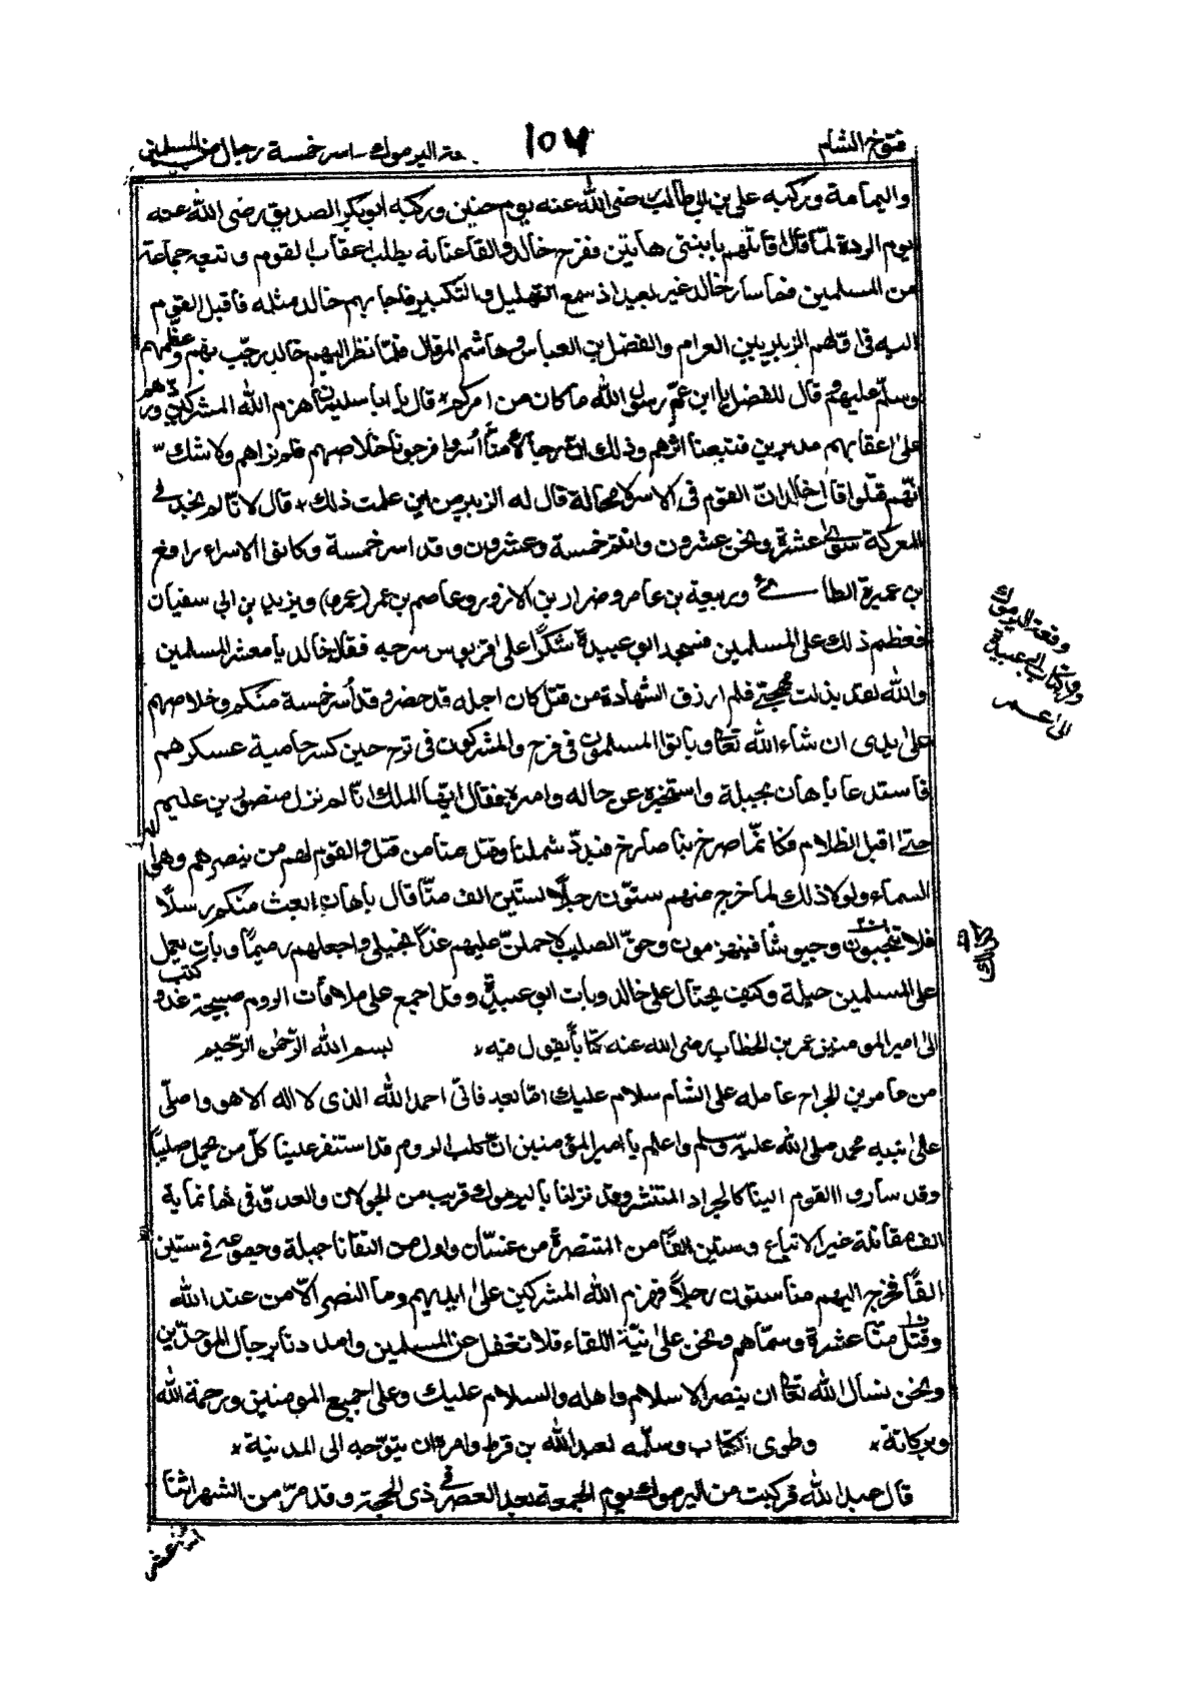 فتوح الشام
١٥٧
اليرموك - اسر خمسة رجال من المسلمين
واليمامة وركبه علي بن ابي طالب رضى الله عنه يوم حنين وركبه ابو بكر الصديق رضى الله عنه
يوم الردة لمّا قال اقاتلهم بابنتى هاتين ففرح خالد والقا عنانه يطلب اعقاب القوم وتبعه جماعة
من المسلمين فما سار خالد غير بعيد اذ سمع التهليل والتكبير فاجابهم خالد مثله فاقبل القوم
اليه فى اوّلهم الزبير بن العوام والفضل بن العباس وهاشم المرقال فلمّا نظر اليهم خالد رحّب بهم وعظّمهم
وسلّم عليهم وقال للفضل يا ابن عمّ رسول الله ما كان من امركم قال يا ابا سليمان هزم الله المشركين وردّهم
على اعقابهم مدبرين فتبعنا اثرهم وذلك انّ رجالا منّا اُسروا فرجونا خلاصهم فلم نراهم ولا شكّ
انّهم قتلوا قال خالد انّ القوم فى الاسر لا محالة قال له الزبير من اين علمت ذلك قال لانّا لم نجد في
المعركة سوى عشرة ونحن عشرون وانتم خمسة وعشرون وقد اسر خمسة وكانوا الاسراء رافع
بن عميرة الطائي وربيعة بن عامر وضرار بن الازور وعاصم بن عمر (عمرو) ويزيد بن ابى سفيان
فعظم ذلك على المسلمين فسجد ابو عبيدة شكرًا على قربوس سرجه فقال خالد يا معشر المسلمين
والله لقد بذلت مهجتي فلم ارزق الشهادة من قتل كان اجله قد حضر وقد أسر خمسة منكم وخلاصهم
على يدى ان شاء الله تعالى وباتوا المسلمون فى فرح والمشركون فى ترح حين كسر حامية عسكرهم
فاستدعا باهان بجبلة واستخبره عن حاله وامره فقال ايها الملك انّا لم نزل منصورين عليهم
حتى اقبل الظلام فكانّما صرخ بنا صارخ فبدّد شملنا وقتل منا من قتل والقوم لهم من ينصرهم وهو اله
السماء ولولا ذلك لما خرج منهم ستّون رجلًا لستّين الف منّا قال باهان ابعث منكم رسلًا
فلا تجيبون وجيوشًا فينهزمون وحقّ الصليب لاحملنّ عليهم غدًا بخيلى واجعلهم رميمًا وبات يعمل
على المسلمين حيلة وكيف يحتال على خالد وبات ابو عبيدة وقد اجمع على ملاقات الروم صبيحة غد وكتب
الى امير المومنين عمر بن الخطاب رضى الله عنه كتابًا يقول فيه بسم الله الرّحمن الرّحيم
من عامر بن الجراح عامله على الشام سلام عليك امّا بعد فانّى احمد الله الذى لا اله الا هو واصلّى
على نبيه محمد صلى الله عليه وسلم واعلم يا امير المؤمنين انّ كلب الروم قد استنفر علينا كلّ من يحمل صليبًا
وقد ساروا القوم الينا كالجراد المنتشر وقد نزلنا باليرموك قريب من الجولان والعدوّ فى ثمانماية
الف مقاتلة غير الاتباع وستين الفًا من المتنصرة من غسّان واول من التقانا جبلة وجموعه فى ستين
الفًا فخرج اليهم منا ستون رجلًا فهزم الله المشركين على ايديهم وما النصر الّا من عند الله
وقتل منّا عشرة وسمّاهم ونحن على نيّة اللقاء فلا تغفل عن المسلمين وامددنا برجال الموحدّين
ونحن نسأل الله تعالى ان ينصر الاسلام واهله والسلام عليك وعلى جميع المومنين ورحمة الله
وبركاتة وطوى الكتاب وسلّمه لعبد الله بن قرط وامره ان يتوّجه الى المدينة
قال عبد الله فركبت من اليرموك يوم الجمعة بعد العصر فى ذى الحجة وقد مرّ من الشهر اثنا
عشر
وقعة اليرموك
وكتاب ابي عبيدة
الى عمر